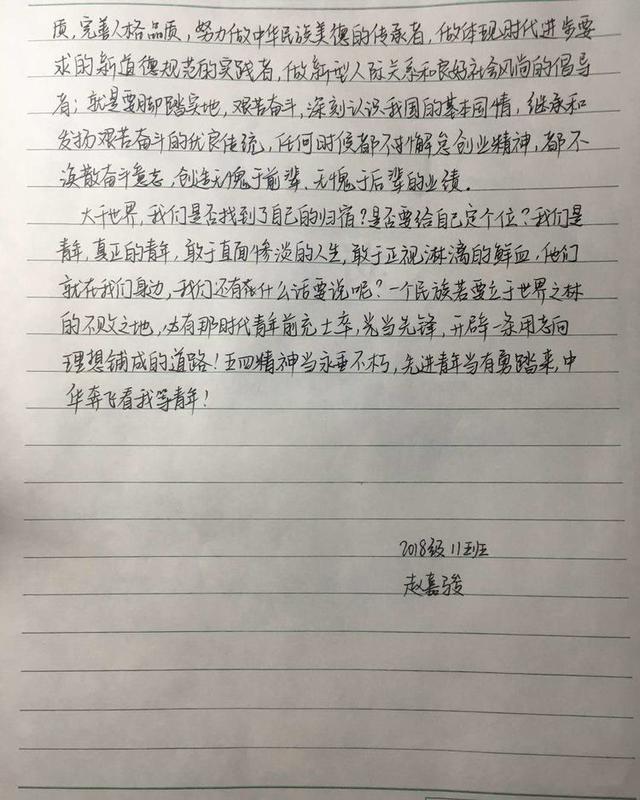 质，完善人格品质，努力做中华民族美德的传承者，做体现时代进步要
求的新道德规范的实践者，做新型人际关系和良好社会风尚的倡导
者；就是要脚踏实地，艰苦奋斗，深刻认识我国的基本国情，继承和
发扬艰苦奋斗的优良传统，任何时候都不懈怠创业精神，都不
涣散奋斗意志，创造无愧于前辈、无愧于后辈的业绩。
大千世界，我们是否找到了自己的归宿？是否要给自己定个位？我们是
青年，真正的青年，敢于直面惨淡的人生，敢于正视淋漓的鲜血，他们
就在我们身边，我们还有在什么话要说呢？一个民族若要立于世界之林
的不败之地，必有那时代青年前充士卒，先当先锋，开辟一条用志向
理想铺成的道路！五四精神当永垂不朽，先进青年当有勇踏来，中
华奔飞看我等青年！
2018级11班
赵嘉骏